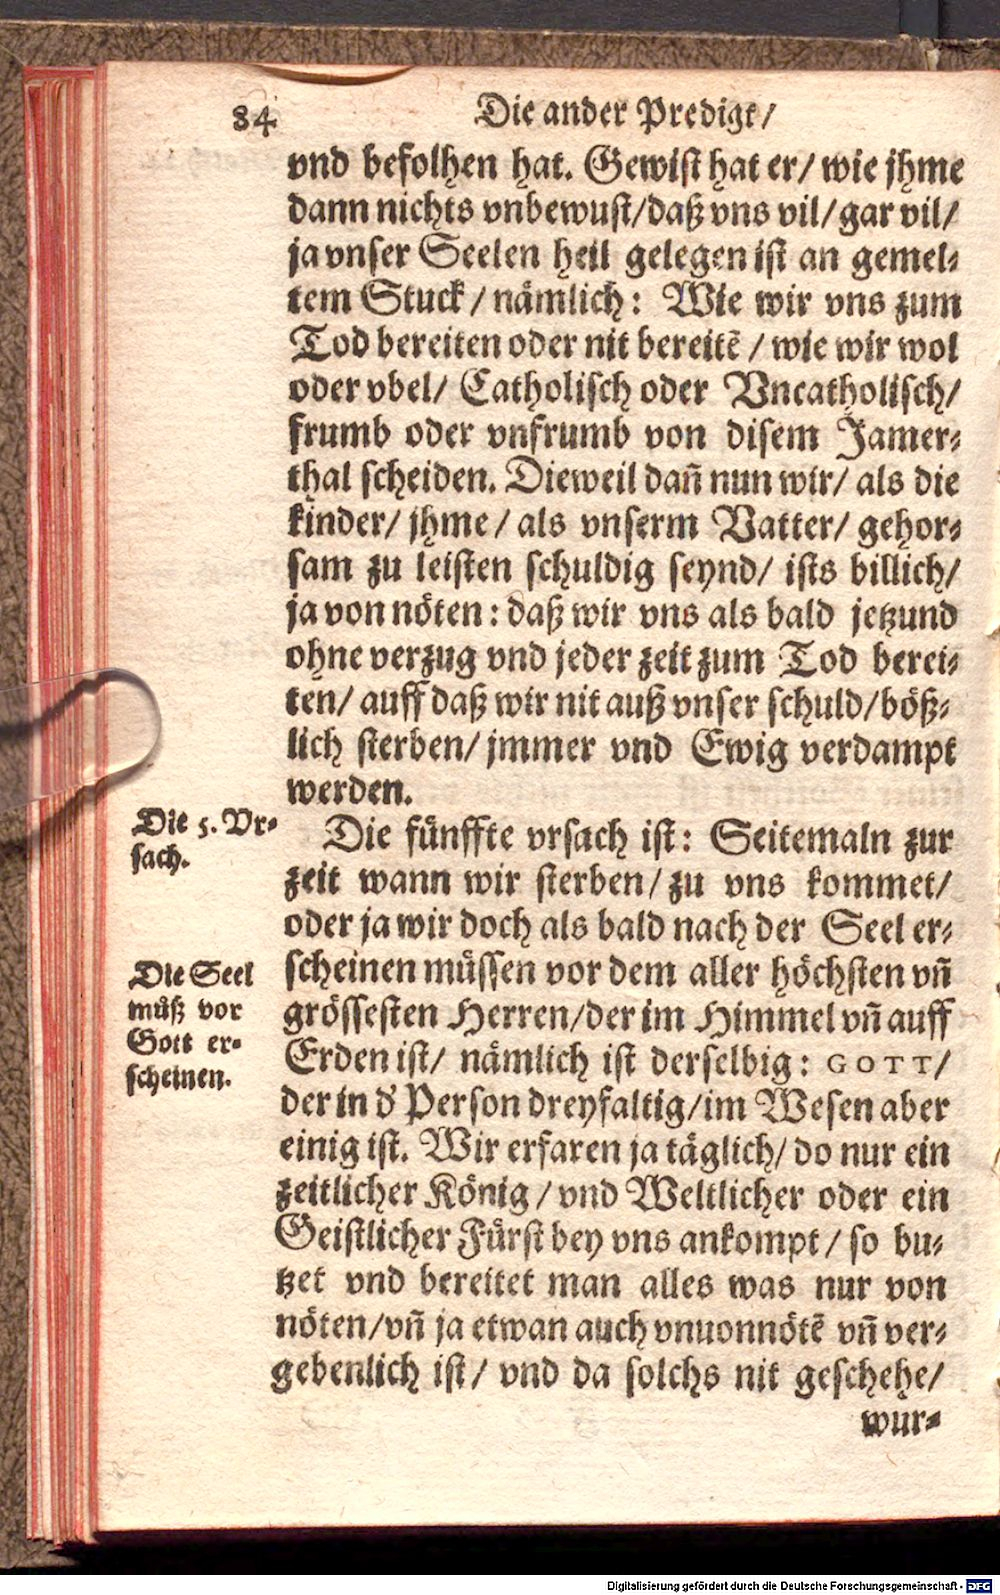 84
Die ander Predigt/
vnd befolhen hat. Gewist hat er/ wie jhme
dann nichts vnbewust/daß vns vil/gar vil/
ja vnser Seelen heil gelegen ist an gemel⸗
tem Stuck/nämlich: Wie wir vns zum
Tod bereiten oder nit bereitē/wie wir wol
oder vbel/ Catholisch oder Vncatholisch/
frumb oder vnfrumb von disem Jamer⸗
thal scheiden. Dieweil dañ nun wir/ als die
kinder/ jhme/ als vnserm Vatter/ gehor⸗
sam zu leisten schuldig seynd/ ists billich/
ja von nöten: daß wir vns als bald jetzund
ohne verzug vnd jeder zeit zum Tod berei⸗
ten/ auff daß wir nit auß vnser schuld/böß⸗
lich sterben/ jmmer vnd Ewig verdampt
werden.
Die 5. Vr⸗
sach.
Die fünffte vrsach ist: Seitemaln zur
zeit wann wir sterben/zu vns kommet/
oder ja wir doch als bald nach der Seel er⸗
Die Seel
müß vor
Gott er⸗
scheinen.
scheinen müssen vor dem aller höchsten vñ
grössesten Herren/der im Himmel vñ auff
Erden ist/ nämlich ist derselbig: GOTT/
der in d' Person dreyfaltig/im Wesen aber
einig ist. Wir erfaren ja täglich/ do nur ein
zeitlicher König/vnd Weltlicher oder ein
Geistlicher Fürst bey vns ankompt/ so bu⸗
tzet vnd bereitet man alles was nur von
nöten/vñ ja etwan auch vnuonnötē vñ ver⸗
gebenlich ist/ vnd da solchs nit geschehe/
wur⸗
Digitalisierung gefördert durch die Deutsche Forschungsgemeinschaft - DFG